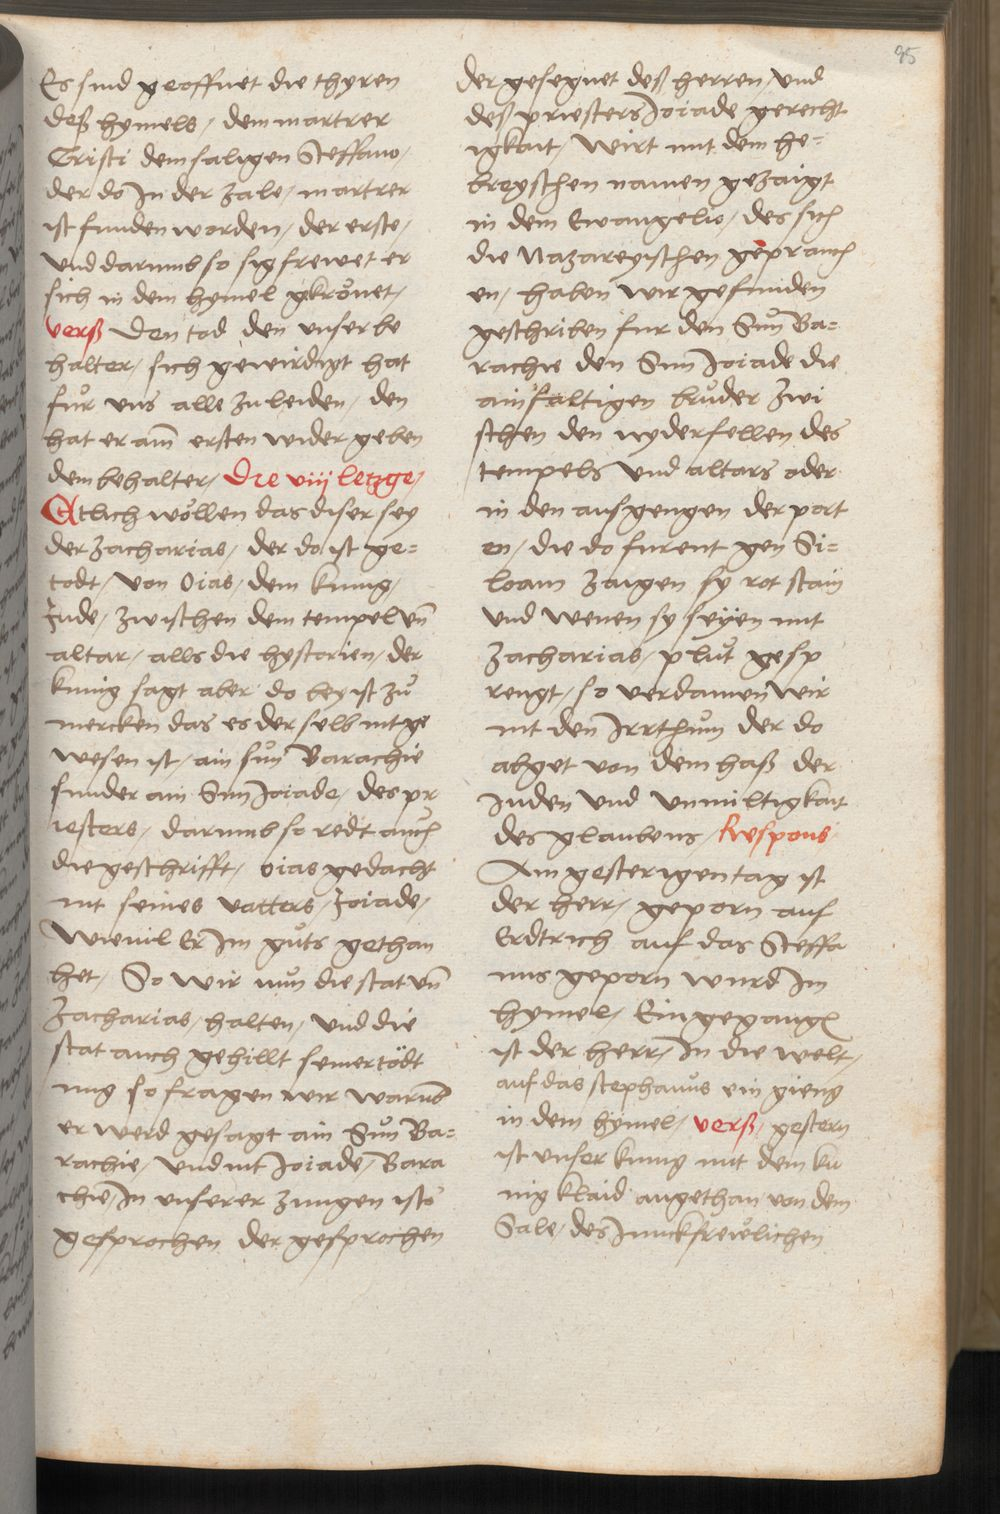 95
Es sind geoffnet die thyren
deß hymels, dem martrer
Cristi dem saligen Steffano,
der do In der zale, martrer
ist funden worden, der erste,
vnd darumb so sigfrewet er
sich in dem hymel gkrönet,
verß Den tod den vnser be
halter, sich gewirdigt hat
für vns alle zu leiden, den
hat er am̄ ersten wider geben
dem behalter, Die viij letzge,
Etlich wöllen das diser sey
der zacharias, der do ist ge=
todt, von Oias, dem kunig,
Jude, zwischen dem tempel vn̄
altar, alls die hystorien, der
kunig sagt aber do bey ist zů
mercken das es der selb nit ge
wesen ist, ain sůn Barachie
sunder ain Sun Joiade, des pr
iesters, darumb so redt auch
die geschrifft, Oias gedacht
nit seines vatters, Joiade,
Wieuil Er Im gůts gethan
het, So wir nůn die stat vn̄
Zacharias, halten, vnd die
stat auch gehillt seiner tödt
ung so fragen wir warumb
er werd gesagt ain Sůn Ba=
rachie, vnd nit Joiade, Bara
chie, In vnserer zungen ists
gesprochen der gesprochen
der gesegnet deß herren, vnd
deß priesters Joiade gerecht
igkait, Wirt mit dem he=
breyschen namen gezaigt
in dem Ewangelio, des sich
die Nazareyischen geprauch
en, haben wir gefunden
geschriben fur den Sůn Ba=
rachie den Sun Joiade die
ainfaltigen brůder zwi
schen den nyderfellen des
tempels vnd altars oder
in den ausgengen der port
en, die do furent gen Si=
loam zaigen sy rot stain
vnd wenen sy seyen mit
Zacharias, plůt gesp
rengt, so verdamen wir
nit den Irrthům der do
abget von dem haß der
Juden vnd vnmiltigkait
des glaubens, Respons
Am gesterigen tag ist
der herr, geporn auf
Erdtrich auf das Steffa
nus geporn wurd Im
hymel, Ein gegangen
ist der herr, In die welt,
auf das stephanus ein gieng
in dem hymel, verß, gestern
ist vnser kunig mit dem ku
nig klaid angethan von dem
Sale, des Junckfrewlichen